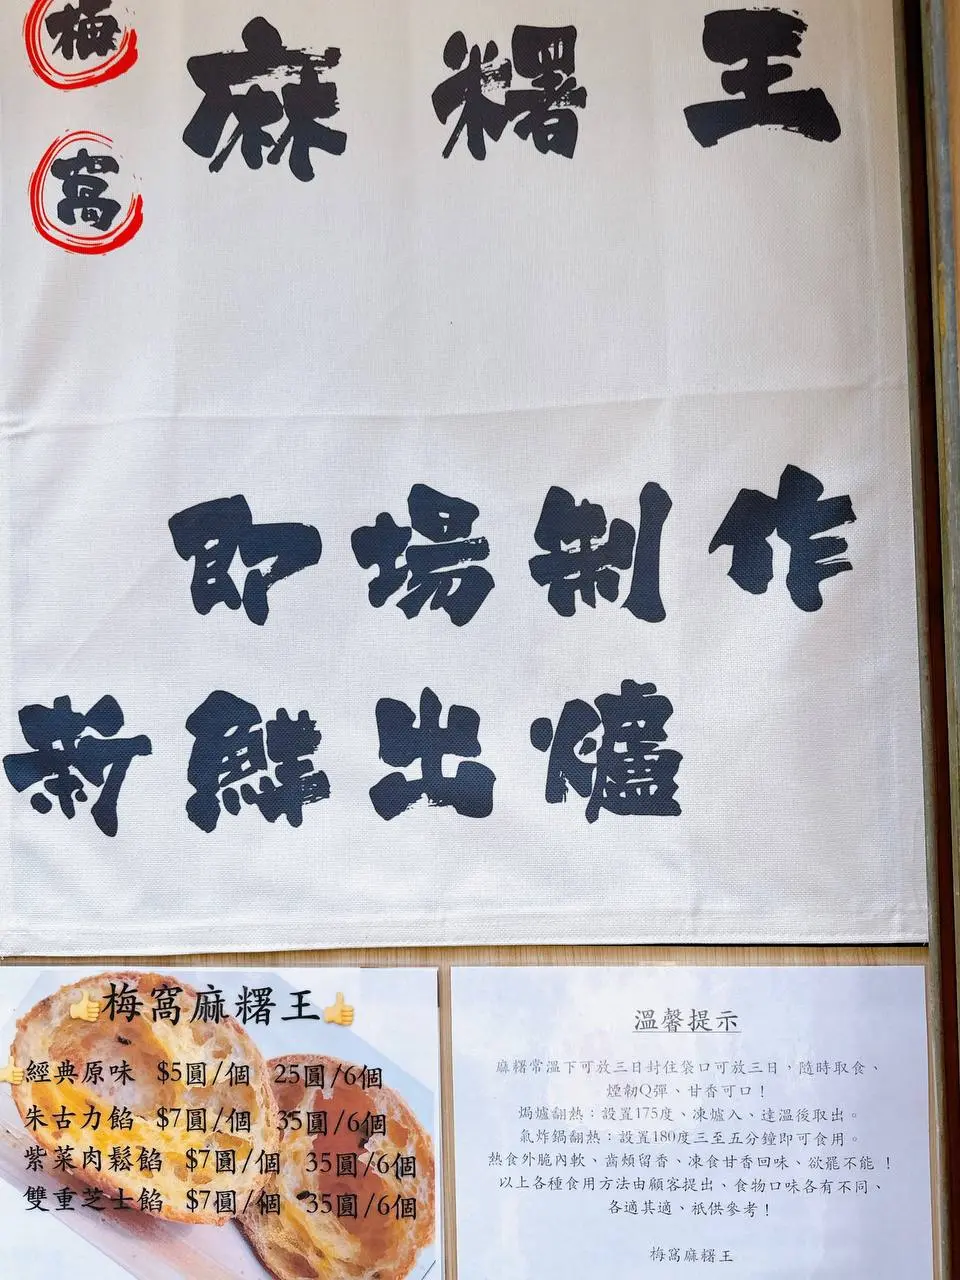 梅窩
麻糬王
即場制作
新鮮出爐
👍梅窩麻糬王👍
👍經典原味 $5圓/個 25圓/6個
朱古力餡 $7圓/個 35圓/6個
紫菜肉鬆餡 $7圓/個 35圓/6個
雙重芝士餡 $7圓/個 35圓/6個
溫馨提示
麻糬常溫下可放三日封住袋口可放三日，隨時取食、
煙韌Q彈、甘香可口！
焗爐翻熱：設置175度、凍爐入、達溫後取出。
氣炸鍋翻熱：設置180度三至五分鐘即可食用。
熱食外脆內軟、齒頰留香、凍食甘香回味、欲罷不能！
以上各種食用方法由顧客提出、食物口味各有不同、
各適其適、祇供參考！
梅窩麻糬王